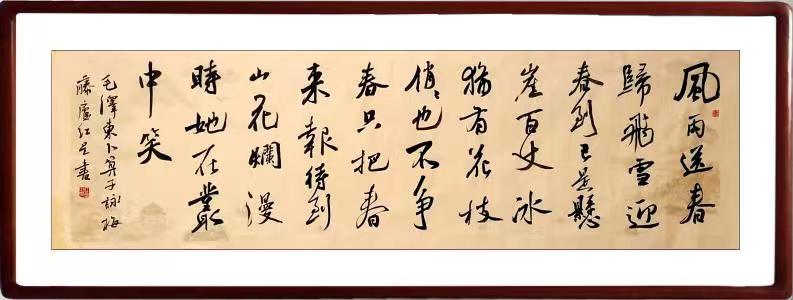 風雨送春
歸飛雪迎
春到已是懸
崖百丈冰
猶有花枝
俏俏也不爭
春只把春
來報待到
山花爛漫
時她在叢
中笑
毛澤東卜算子詠梅
藤廬紅星書